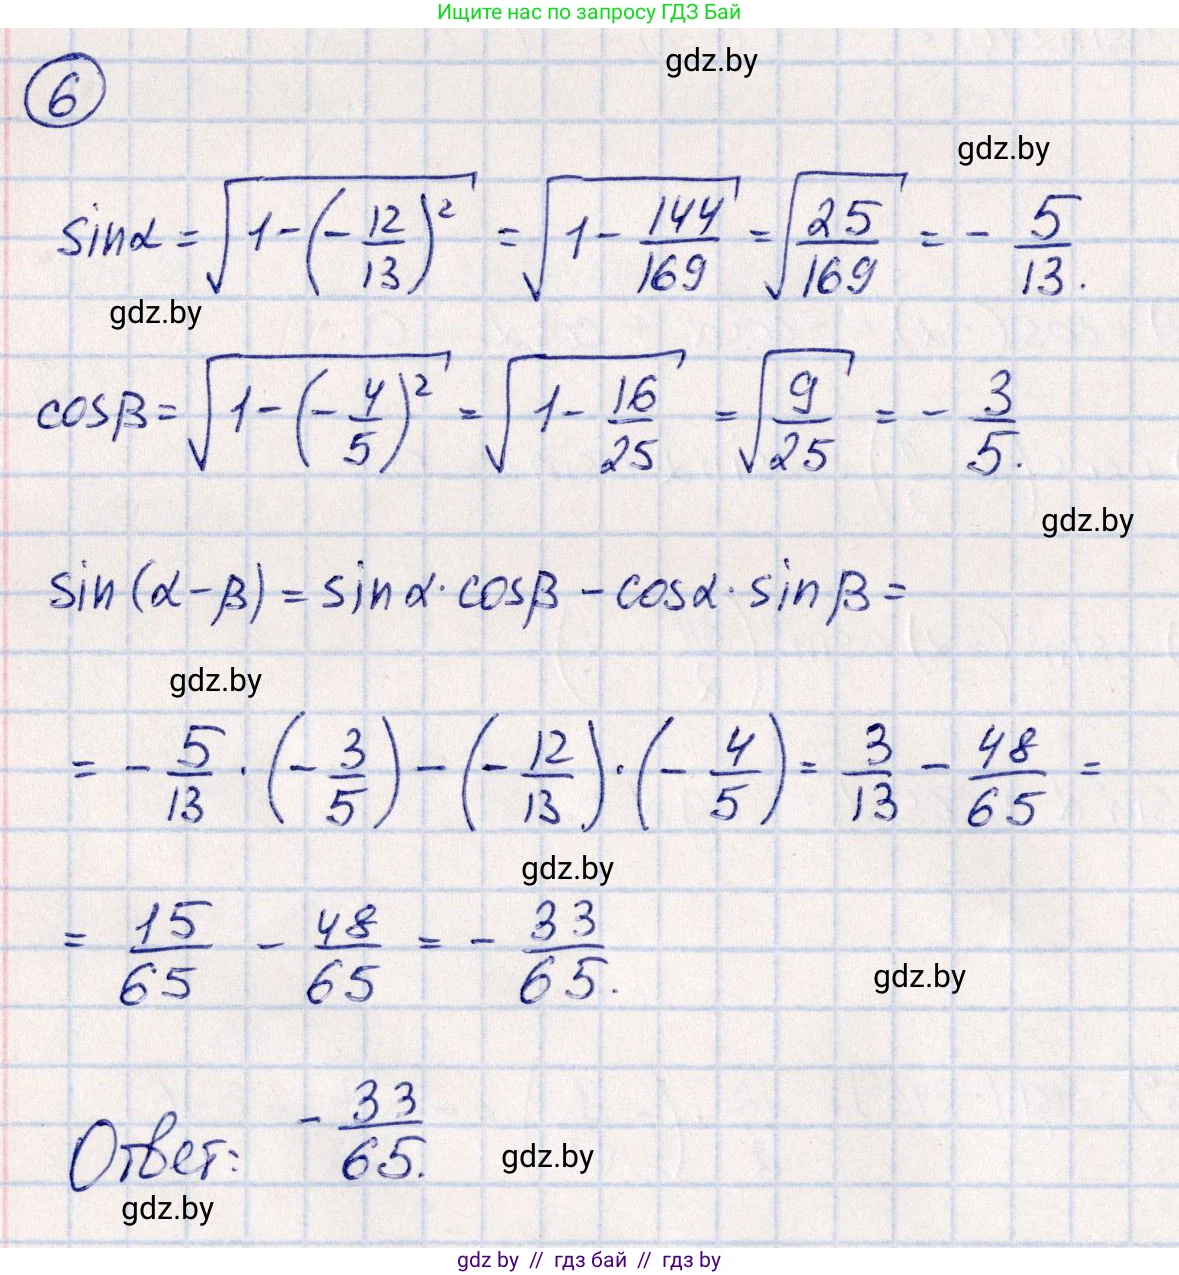 Ищите нас по запросу ГДЗ Бай
gdz.by
6
gdz.by
sinα = √(1-(-12/13)²) = √(1-144/169) = √(25/169) = -5/13.
gdz.by
cosβ = √(1-(-4/5)²) = √(1-16/25) = √(9/25) = -3/5.
gdz.by
sin(α-β) = sinα·cosβ - cosα·sinβ =
gdz.by
= -5/13·(-3/5)-(-12/13)·(-4/5) = 3/13 - 48/65 =
gdz.by
= 15/65 - 48/65 = -33/65.
gdz.by
Ответ: -33/65.
gdz.by
gdz.by
gdz by // гдз бай // гдз by